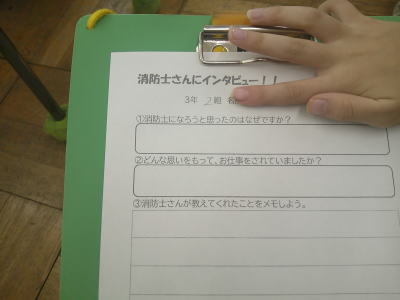 消防士さんにインタビュー！！
3年 2組 名
①消防士になろうと思ったのはなぜですか？
②どんな思いをもって、お仕事をされていましたか？
③消防士さんが教えてくれたことをメモしよう。